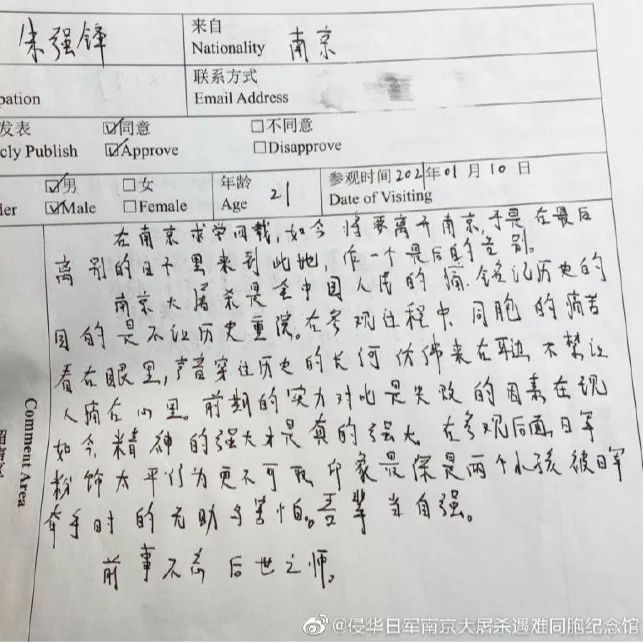 来自
Nationality 南京
朱强锋
联系方式
pation
Email Address
发表 同意 不同意
cly Publish Approve Disapprove
男 女 年龄 21 参观时间 2021年01月10日
der Male Female Age Date of Visiting
在南京求学四载,如今将要离开南京,于是在最后
离别的日子里来到此地,作一个最后的告别。
南京大屠杀是全中国人民的痛,铭记历史的
目的是不让历史重演。在参观过程中,同胞的痛苦
看在眼里,声音穿过历史的长河仿佛来在耳边,不禁让
人痛在心里。前期的实力对比是失败的因素在现
如今,精神的强大才是真的强大。在参观后面,日军
粉饰太平行为更不可取,印象最深是两个小孩被日军
牵手时的无助与害怕。吾辈当自强。
前事不忘后世之师。
Comment Area
@侵华日军南京大屠杀遇难同胞纪念馆